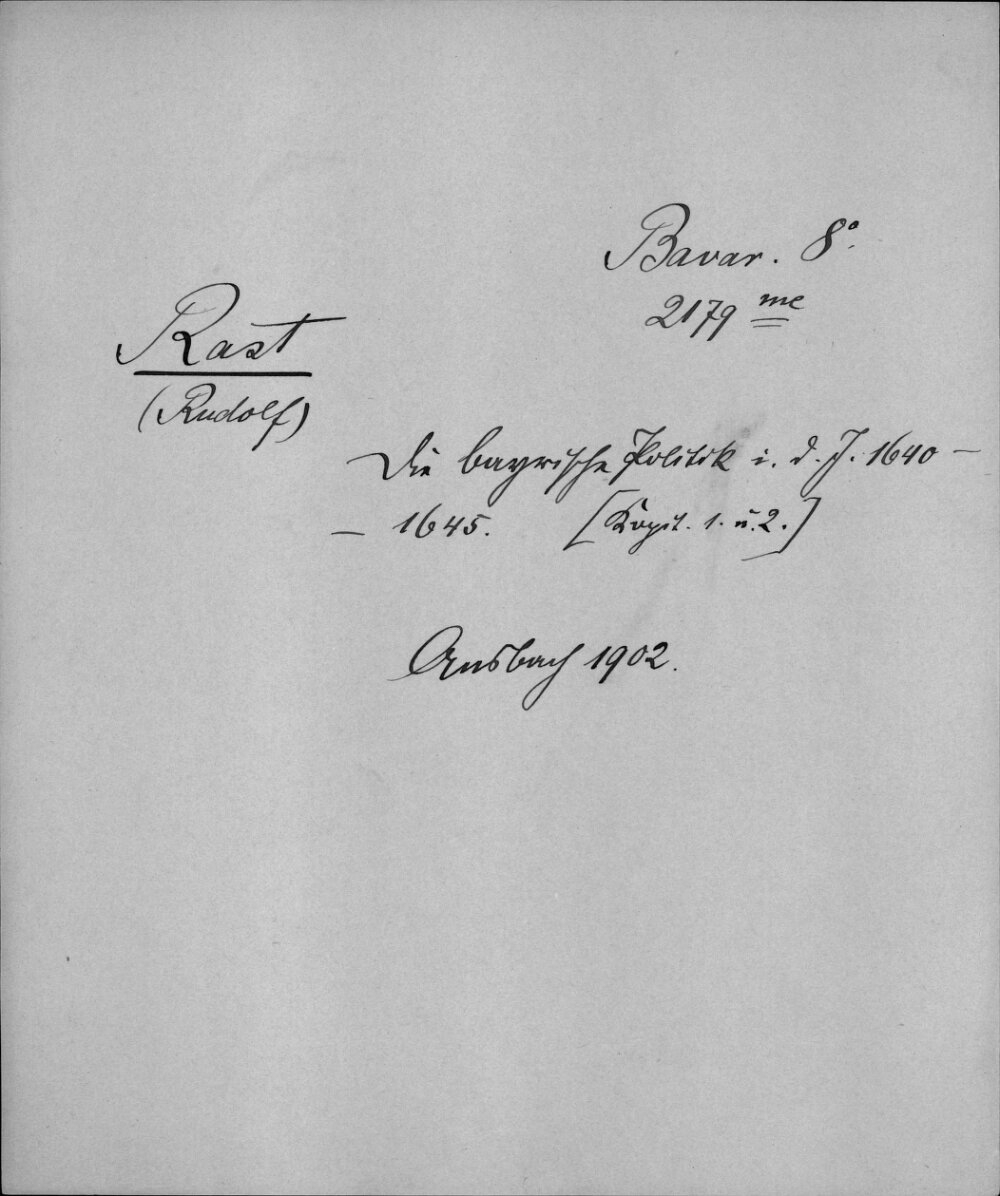 Bavar. 8°.
2179 me
Rast
(Rudolf)
Die bayrische Politik i. d. J. 1640 –
– 1645. [Kapit. 1. u. 2.]
Ansbach 1902.